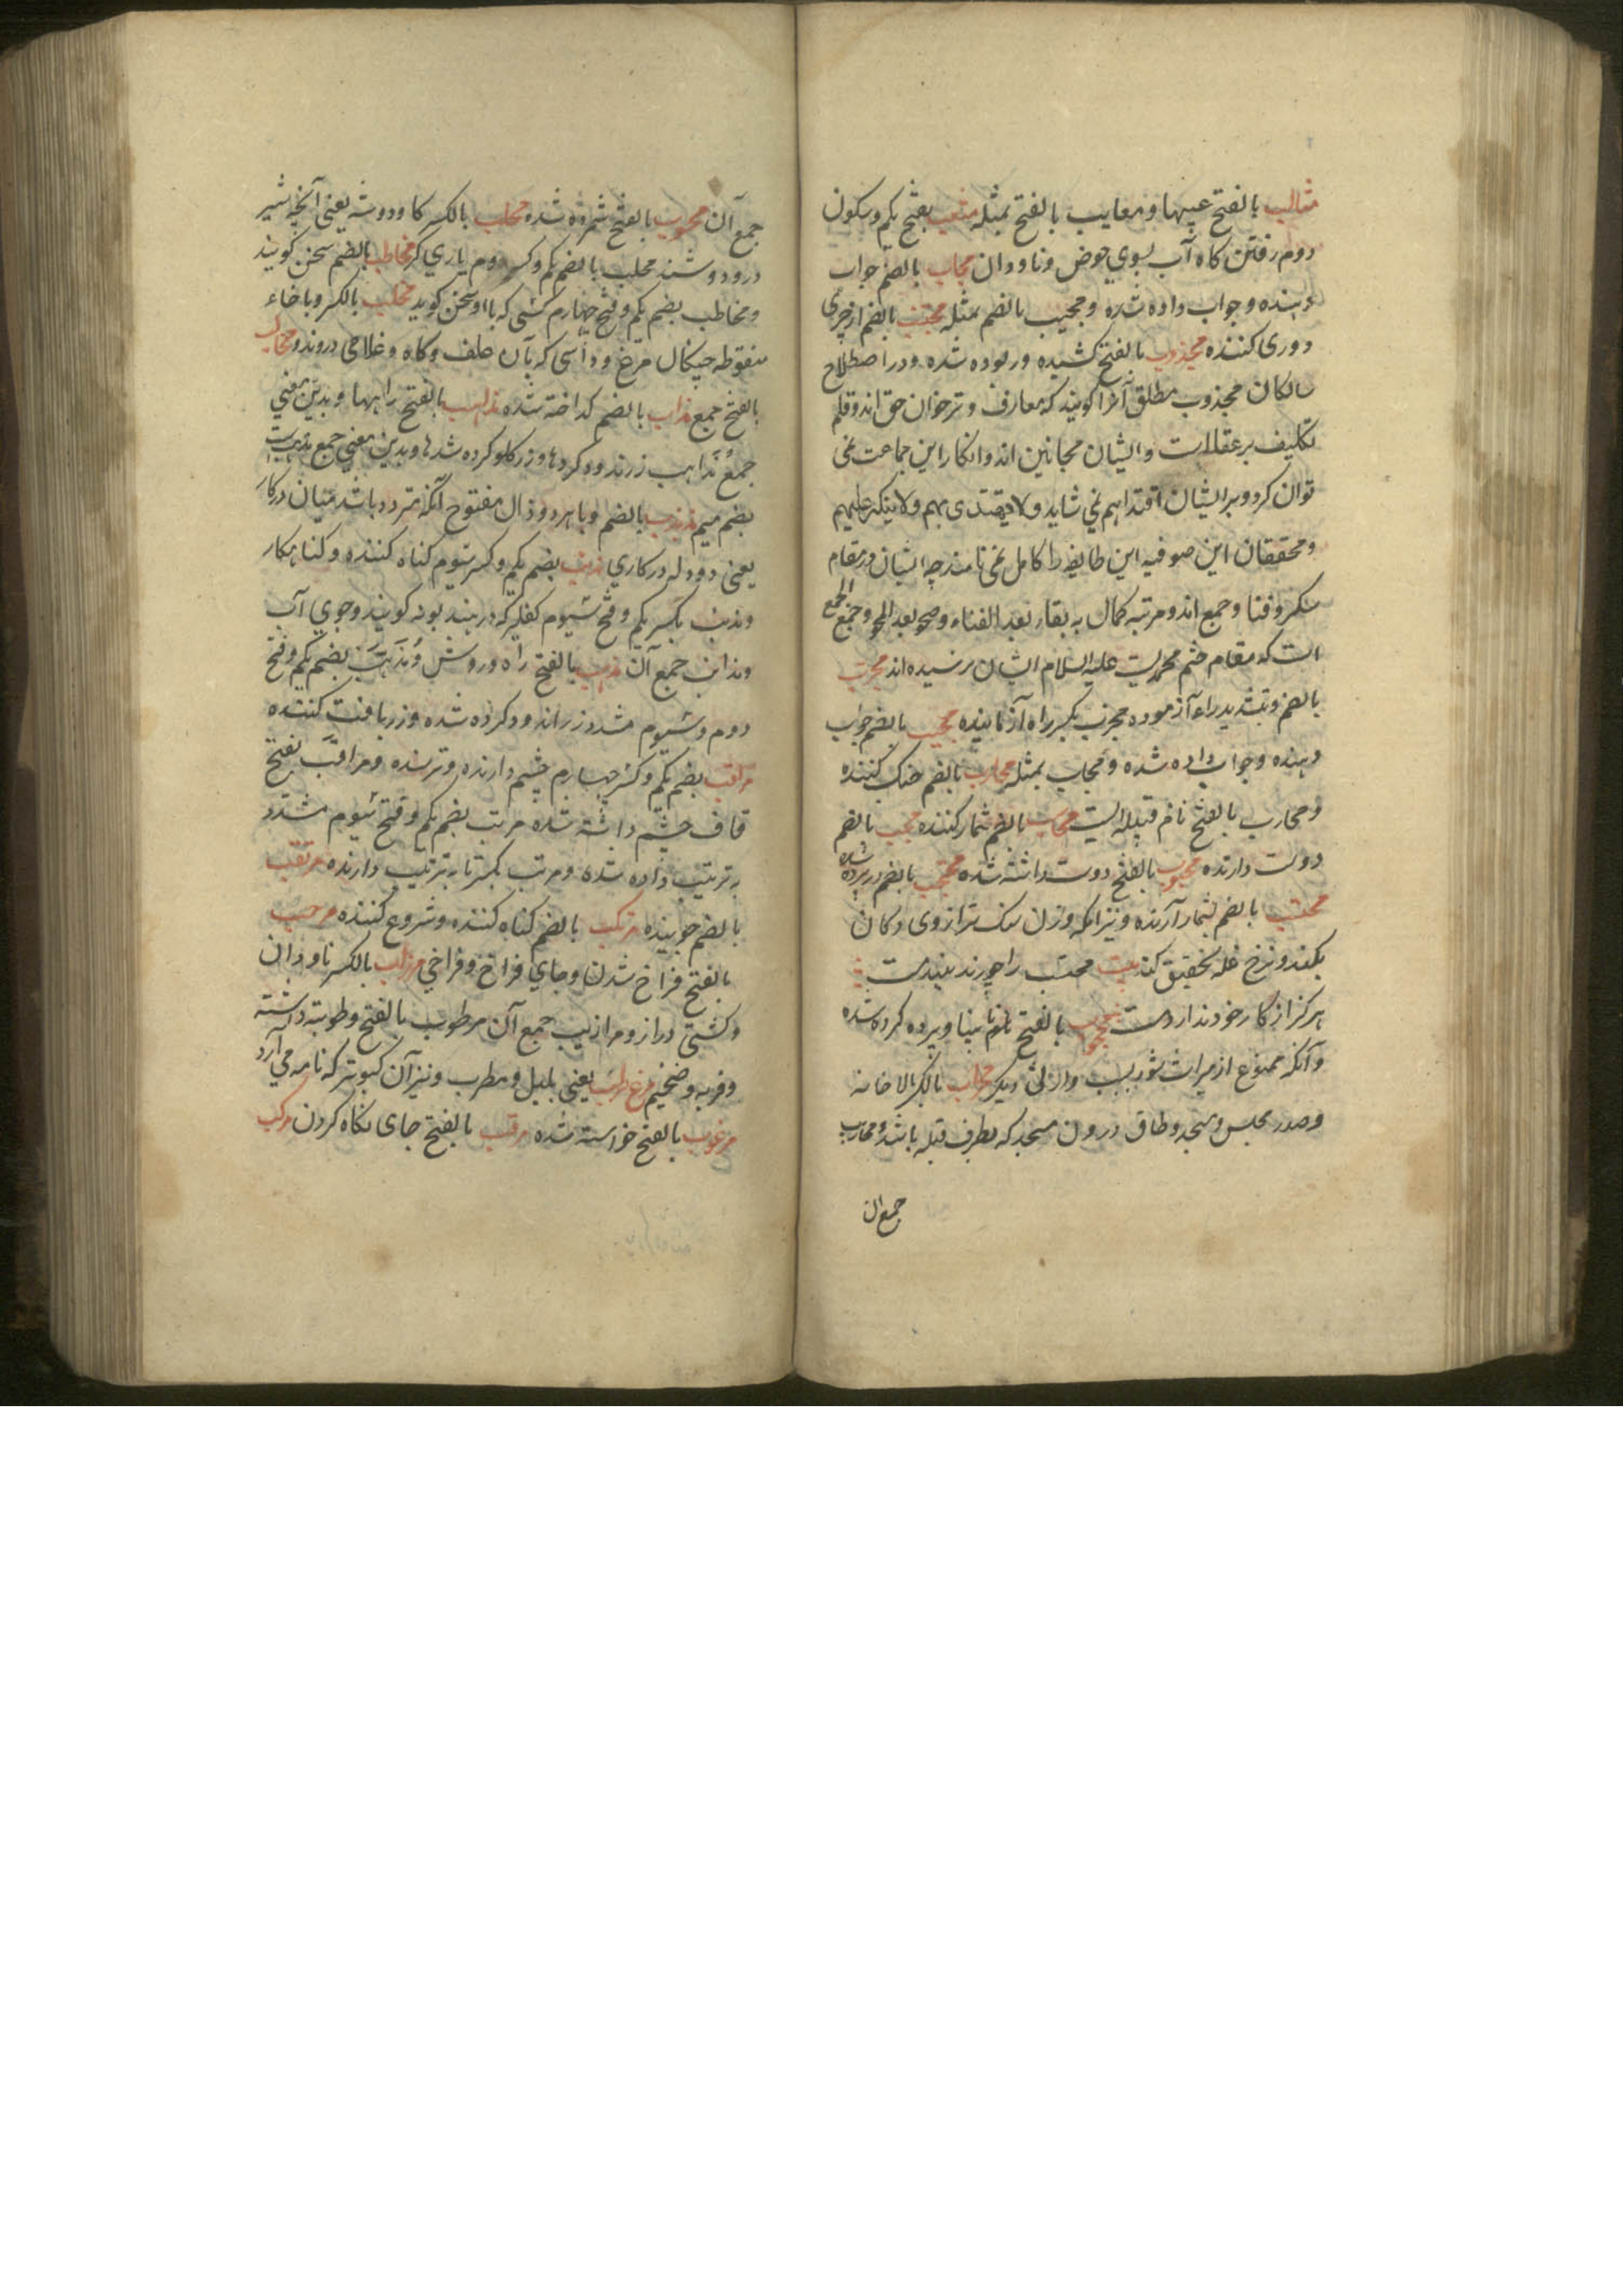 مثالب بالفتح عیبها و معایب بالفتح بمثله مثعب بفتح یکم و سکون
دوم رفتن کاه آب بسوی حوض و ناودان مجاب بالضم جواب
دهنده و جواب داده شده و مجیب بالضم بمثله مجتنب بالضم از چیزی
دوری کننده مجذوب بالفتح کشیده و ربوده شده و در اصطلاح
سالکان مجذوب مطلق آنرا کویند که معارف و ترخوان حق اند و قلم
تکلیف بر عقلاست و ایشان مجانین اند و انکار این جماعت نمی
توان کرد و بر ایشان اقتدا هم نمی شاید و لا یقتدی بهم و لا ینکر علیهم
و محققان این صوفیه این طایفه را کامل نمی نامند چه ایشان در مقام
سکر و فنا و جمع اند و مرتبه کمال به بقا بعد الفناء و صحو بعد المحو و جمع الجمع
است که مقام ختم محمدیست علیه السلام ایشان نرسیده اند مجرب
بالضم و تشدید راء آزموده مجرب بکسر راء آزماینده مجیب بالضم جواب
دهنده و جواب داده شده و مجاب بمثله محارب بالضم جنک کننده
و محارب بالفتح نام قبیله ایست محاسب بالضم شمار کننده محب بالضم
دوست دارنده محبوب بالفتح دوست داشته شده محتجب بالضم در پرده شده
محتسب بالضم بشمار آرنده و نیز آنکه وزن سنک ترازوی دکان
بکند و نرخ غله تحقیق کند بیت محتسب را چو رند بیند مست
هرکز از کار خود ندارد دست محجوب بالفتح نابینا و پرده کرده شده
و آنکه ممنوع از میراث شود بسبب وارثی دیکر محراب بالکسر بالاخانه
و صدر مجلس و مسجد و طاق درون مسجد که بطرف قبله باشد و محاریب
جمع آن
جمع آن محسوب بالفتح شمرده شده محلب بالکسر کا و دوشه یعنی آنچه شیر
درو دوشند محلب بالضم یکم و کسر دوم یاری کر مخاطب بالضم سخن کویند
و مخاطب بضم یکم و فتح چهارم کسی که با او سخن کوید مخلب بالکسر و با خاء
منقوطه چنکال مرغ و داسی که بآن علف و کاه و غلامی دروند و مخالب
بالفتح جمع مذاب بالضم کداخته شده مذاهب بالفتح راهها و بدین معنی
جمع مذاهب زراندود کردها و زر کلو کرده شدها و بدین معنی جمع مذهبست
بضم میم مذبذب بالضم و با هر دو ذال مفتوح آنکه متردد باشد میان در کار
یعنی دو دله در کاری مذنب بضم یکم و کسر سیوم کناه کننده و کناهکار
و مذنب بکسر یکم و فتح سیوم کفلیز که در بند بود کویند و جوی آب
و مذانب جمع آن مذهب بالفتح راه و روش و مذهب بضم یکم و فتح
دوم و سیوم مشدد زر اندود کرده شده و زر بافت کننده
مراقب بضم یکم و کسر چهارم چشم دارنده و ترسنده و مراقب بفتح
قاف چشم داشته شده مرتب بضم یکم و فتح سیوم مشدد
به ترتیب داده شده و مرتب بکسر تا به ترتیب دارنده مرتقب
بالضم جوینده مرتکب بالضم کناه کننده و شروع کننده مرحب
بالفتح فراخ شدن و جای فراخ و فراخی مرزاب بالکسر ناودان
و کشتی دراز و مرازیب جمع آن مرطوب بالفتح رطوبته داشته
و فربه و ضخیم مرغ طرب یعنی بلبل و مطرب و نیز آن کبوتر که نامه می آرد
مرغوب بالفتح خواسته شده مرقب بالفتح جای نکاه کردن مرکب